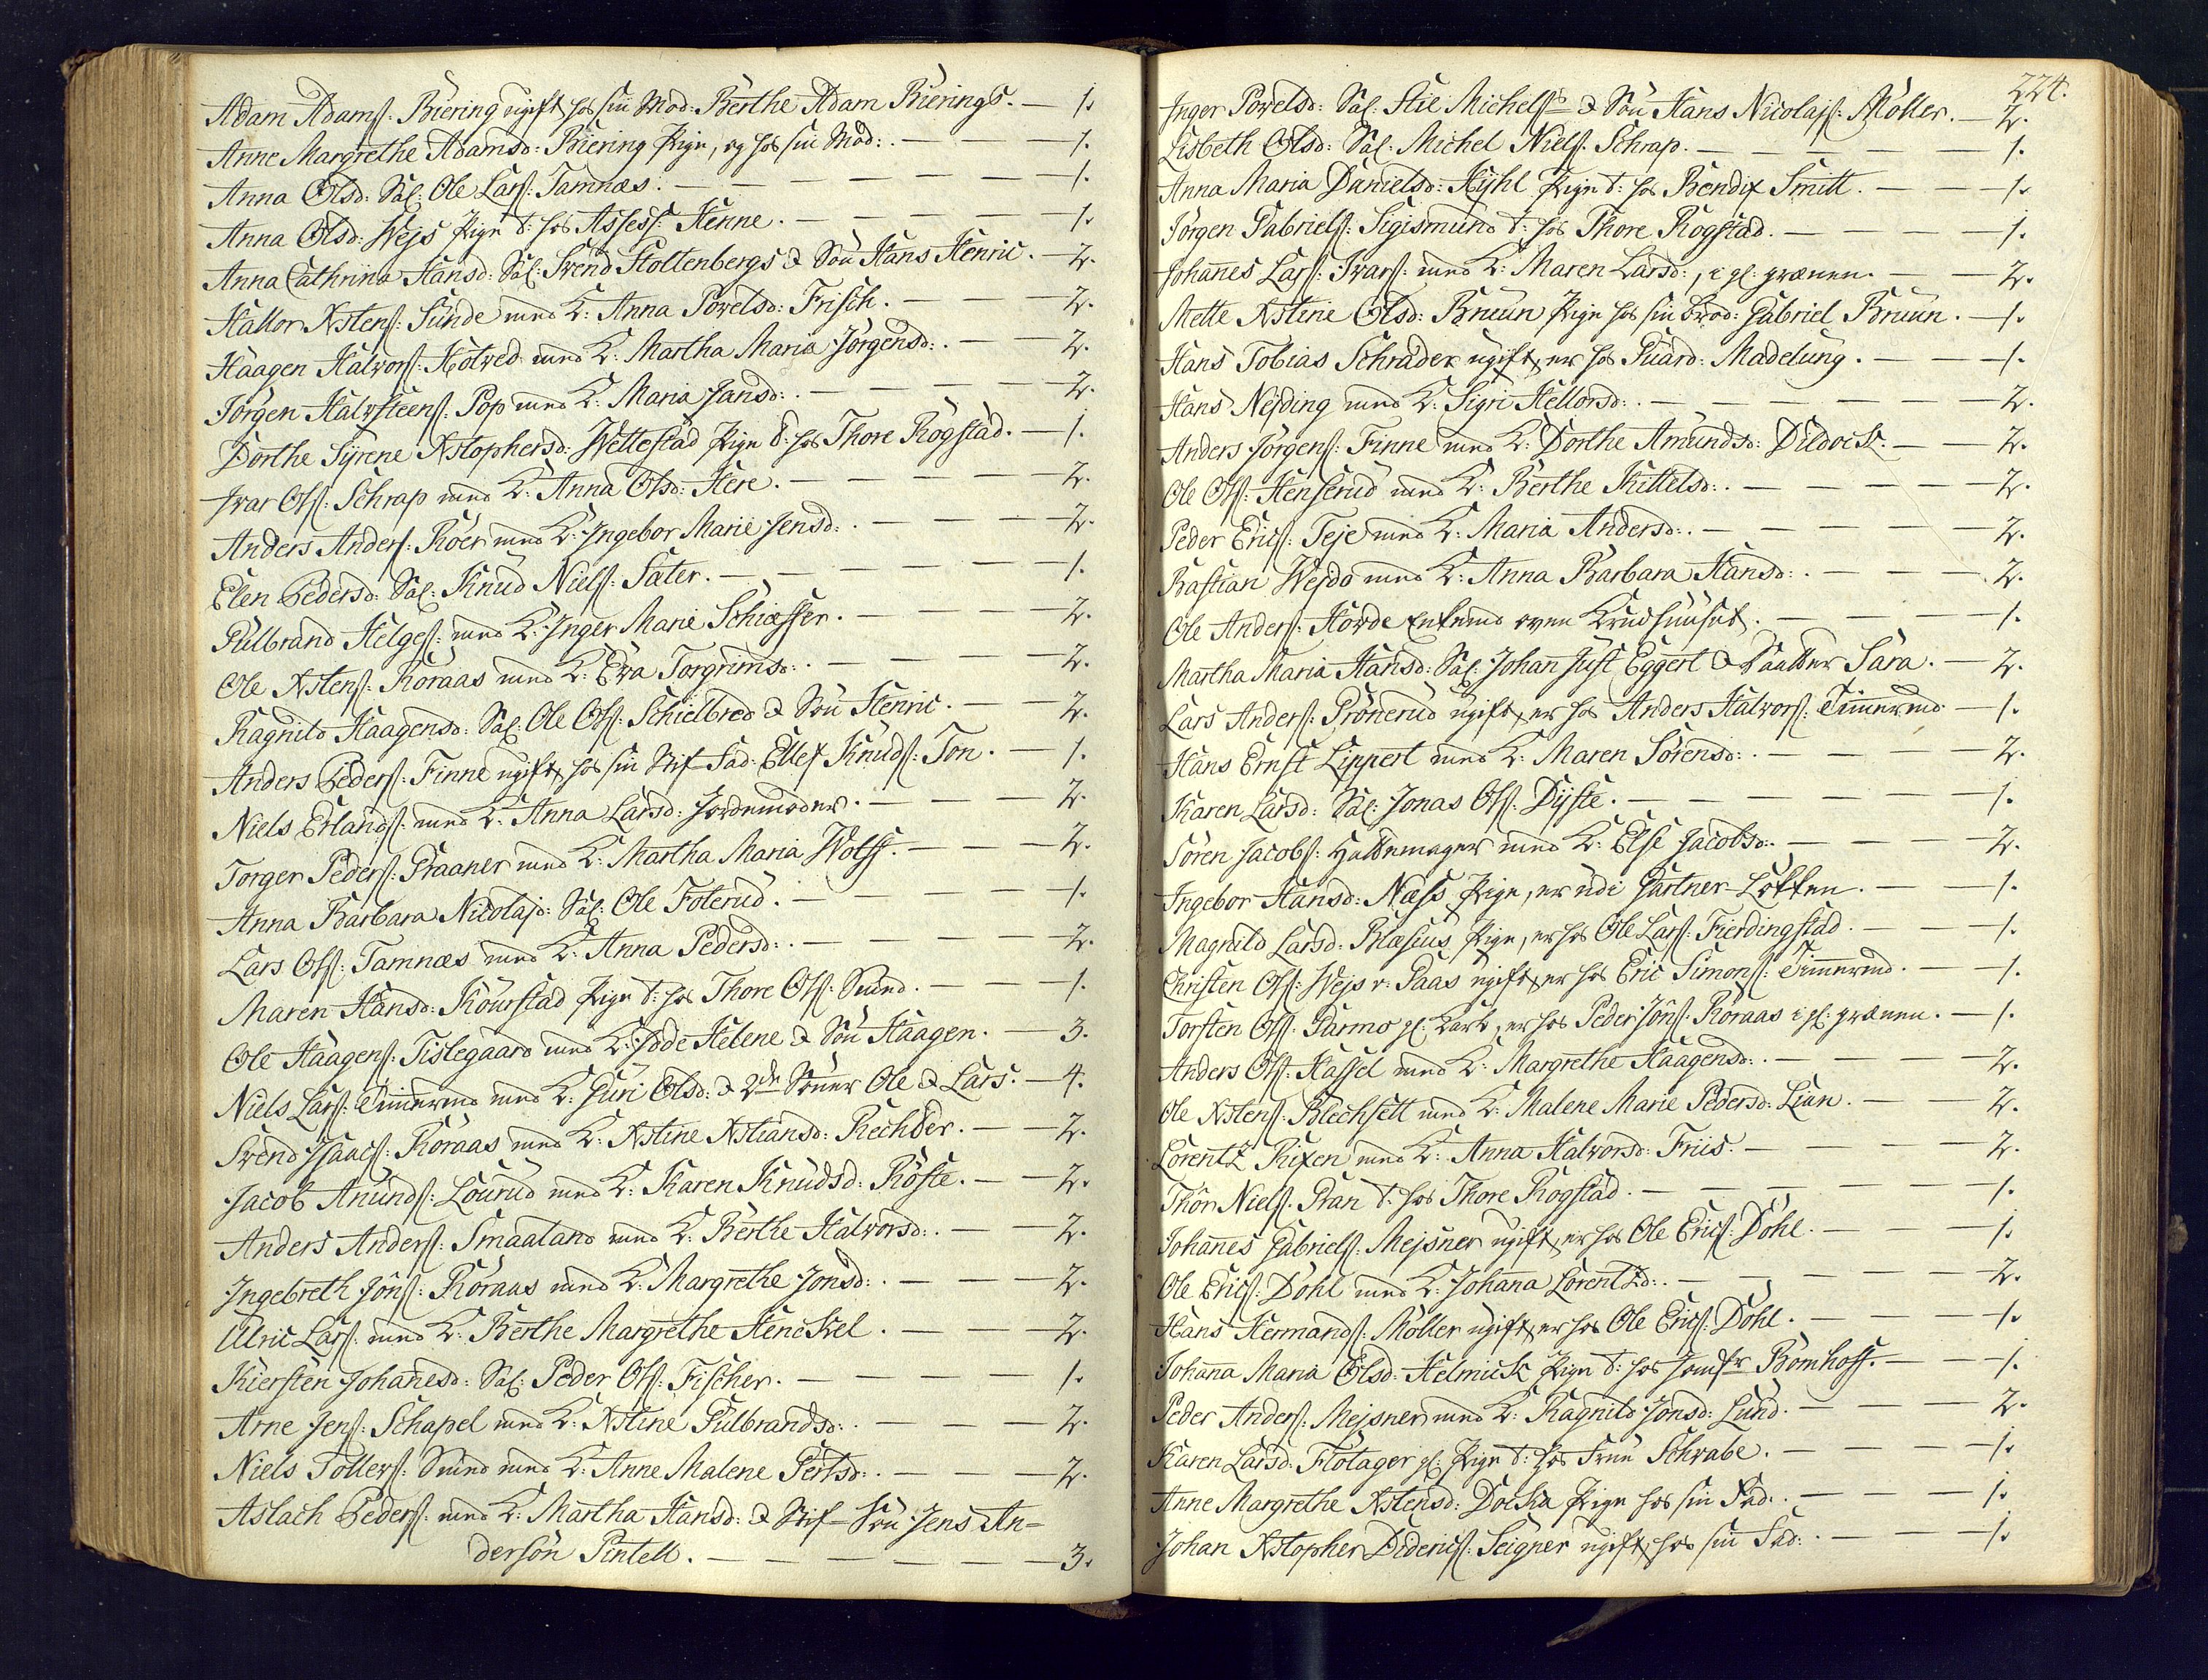 Adam Adamſ: Biering ugift hos sin Mod: Berthe Adam Bierings. — 1.
Anne Margrethe Adamsd: Biering Pige, og hos sin Mod: . — — — 1.
Anna Olsd: Sal: Ole Larſ: Tamnæs. — — — — — 1.
Anna Olsd: Wejs Pige t: hos Assess: Henne. — — — — 1.
Anna Cathrina Hansd: Sal: Svend Stoltenbergs & Søn Hans Henric. — 2.
Hallor Xstenſ: Sunde med K: Anna Povelsd: Frisch. — — — 2.
Haagen Halvorſ: Holved med K: Martha Maria Jörgensd: . — — 2.
Jörgen Halvſteenſ: Pop med K: Maria Jansd: . — — — — 2.
Dorthe Syrene Xstophersd: Wettestad Pige t: hos Thore Rogstad. — 1.
Ivar Olſ: Schrap med K: Anna Olsd: Here. — — — — 2.
Anders Anderſ: Röer med K: Ingebor Marie Jensd: . — — — 2.
Elen Pedersd: Sal: Knud Nielſ: Sater. — — — — — 1.
Gulbrand Helgeſ: med K: Inger Marie Schiesser. — — — 2.
Ole Xstenſ: Röraas med K: Eva Torgrimsd: . — — — — 2.
Ragnild Haagensd: Sal: Ole Olſ: Schielbred & Søn Henric. — 2.
Anders Pederſ: Finne ugift, hos sin Stif-Fad: Ellef Knudſ: Ton. — 1.
Niels Erlandſ: med K: Anna Larsd: Jordemoder. — — — 2.
Torger Pederſ: Graaner med K: Martha Maria Wolff. — — — 2.
Anna Barbara Nicolajd: Sal: Ole Foterud. — — — — 1.
Lars Olſ: Tamnæs med K: Anna Pedersd: . — — — — 2.
Maren Hansd: Kourstad Pige t: hos Thore Olſ: Smed. — — — 1.
Ole Haagenſ: Tislegaard med K: Jode Helene & Søn Haagen. — 3.
Niels Larſ: Timermd med K: Guri Olsd: & 2de Sönner Ole & Lars. — 4.
Svend Isaacſ: Röraas med K: Xstine Xstiansd: Rechder. — — 2.
Jacob Anundſ: Lourud med K: Karen Knudsd: Röste. — — 2.
Anders Anderſ: Smaaland med K: Berthe Halvorsd: . — — — 2.
Ingebreth Jönſ: Röraas med K: Margrethe Jonsd: . — — — 2.
Ulric Larſ: med K: Berthe Margrethe Henckel. — — — 2.
Kiersten Johanesd: Sal: Peder Olſ: Fischer. — — — — 1.
Arne Jenſ: Schapel med K: Xstine Gulbrandsd: . — — — 2.
Niels Tollerſ: Smed med K: Anne Malene Gertsd: . — — — 2.
Aslach Pederſ: med K: Martha Hansd: & Stif-Søn Jens An-
dersön Pintell. — — — — — — 3.
224.
Inger Povelsd: Sal: Stie Michelſ & Søn Hans Nicolajſ: Möller. — 2.
Lisbeth Olsd: Sal: Michel Nielſ: Schrap. — — — — 1.
Anna Maria Danielsd: Kyhl Pige t: hos Bendix Smitt. — — 1.
Jörgen Gabrielſ: Sigismund t: hos Thore Rogstad. — — — 1.
Johannes Larſ: Ivarſ: med K: Maren Larsd: , i gl: grænen. — — 2.
Mette Xstine Olsd: Bruun Pige hos sin Brod: Gabriel Bruun. — 1.
Hans Tobias Schrader ugift, er hos Guard: Madelung. — — 1.
Hans Nejding med K: Sigri Hellorsd: . — — — — 2.
Anders Jörgenſ: Finne med K: Dorthe Amundsd: Dildock. — — 2.
Ole Olſ: Henserud med K: Berthe Kittelsd: . — — — — 2.
Peder Ericſ: Teje med K: Maria Andersd: . — — — — 2.
Bastian Wejda med K: Anna Barbara Hansd: . — — — 2.
Ole Anderſ: Hovde Enkemd oven Krudhuuset. — — — 1.
Martha Maria Hansd: Sal: Johan Just Eggert & Daatter Sara. — 2.
Lars Anderſ: Prönerud ugift, er hos Anders Halvorſ: Timermd. — 1.
Hans Ernst Lippert med K: Maren Sörensd: . — — — 2.
Karen Larsd: Sal: Jonas Olſ: Dyste. — — — — — 1.
Sören Jacobſ: Hattemager med K: Else Jacobsd: . — — — 2.
Ingebor Hansd: Næss Pige, er udi Gartner-Løkken. — — 1.
Magnild Larsd: Blæsius Pige, er hos Ole Larſ: Fierdingstad. — — 1.
Christen Olſ: Wejs v: Paas ugift, er hos Eric Simonſ: Timermd. — 1.
Torsten Olſ: Garmo gl: Karl, er hos Peder Jönſ: Röraas i gl: grænen. — 1.
Anders Olſ: Hassel med K: Margrethe Haagensd: . — — — 2.
Ole Xstenſ: Blechsett med K: Malene Marie Pedersd: Lian. — — 2.
Lorentz Rixen med K: Anna Halvorsd: Friis. — — — 2.
Thör Nielſ: Gran t: hos Thore Rogstad. — — — — — 1.
Johannes Gabrielſ: Mejsner ugift, er hos Ole Ericſ: Döhl. — — 1.
Ole Ericſ: Döhl med K: Johanna Lorentzd: . — — — — 2.
Hans Hermandſ: Möller ugift, er hos Ole Ericſ: Döhl. — — 1.
Johanna Maria Olsd: Helmick Pige t: hos Jomfr Bömhoff. — — 1.
Peder Anderſ: Mejsner med K: Ragnild Jonsd: Lund. — — — 2.
Karen Larsd: Flotager gl: Pige t: hos Frue Schrabe. — — — 1.
Anne Margrethe Xstensd: Docka Pige hos sin Fad: . — — — 1.
Johan Xstopher Didericſ: Seigner ugift, hos sin Fad: . — — 1.